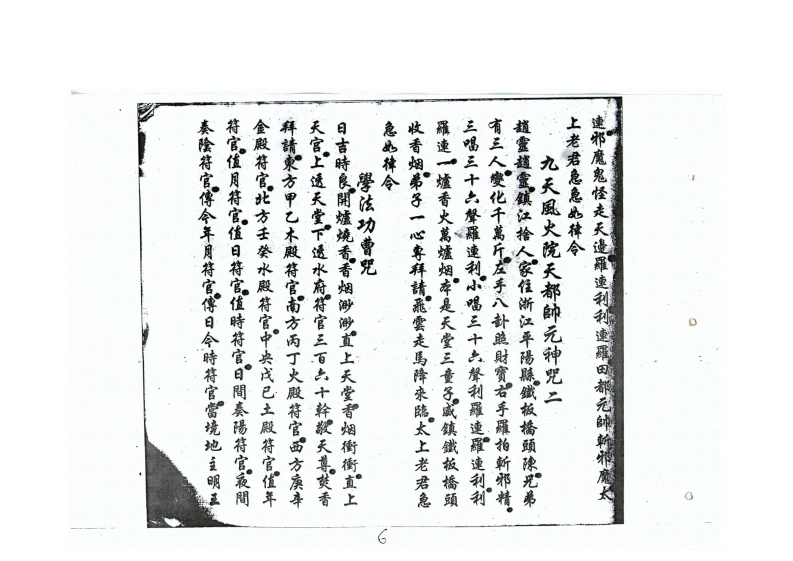 連邪魔鬼怪走天邊羅連利利連羅田都元帥斬邪魔太
上老君急急如律令
九天風火院天都帥元神咒二
趙靈趙靈鎮江捨人家住浙江平陽縣鐵板橋頭陳兄弟
有三人變化千萬斤左手八卦照財寶右手羅拍斬邪精
三唱三十六聲羅連利小唱三十六聲利羅連羅連利利
羅連一爐香火萬爐烟本是天堂三童子威鎮鐵板橋頭
收香烟弟子一心專拜請飛雲走馬降來臨太上老君急
急如律令
學法功曹咒
日吉時良開爐燒香香烟渺渺直上天堂香烟衝衝直上
天宮上透天堂下透水府符官三百六十幹敬天尊焚香
拜請東方甲乙木殿符官南方丙丁火殿符官西方庚辛
金殿符官北方壬癸水殿符官中央戊己土殿符官值年
符官值月符官值日符官值時符官日間奏陽符官夜間
奏陰符官傳今年月符官傳日今時符官當境地主明王
6